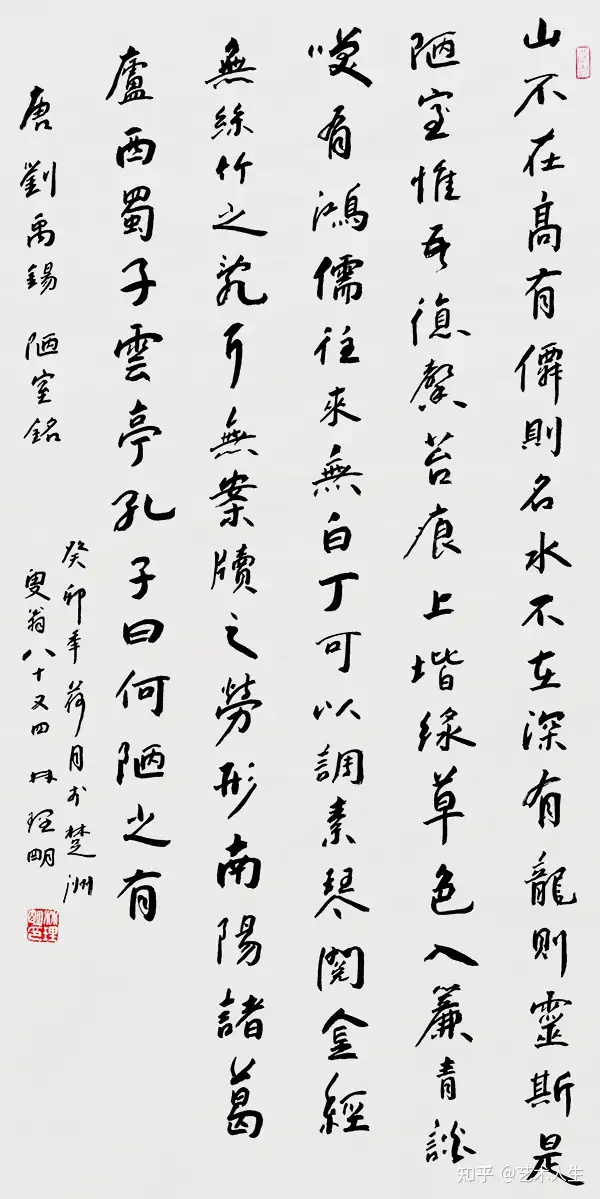 山不在高有僊則名水不在深有龍則靈斯是
陋室惟吾德馨苔痕上堦綠草色入簾青談
咲有鴻儒往來無白丁可以調素琴閱金經
無絲竹之亂耳無案牘之勞形南陽諸葛
廬西蜀子雲亭孔子曰何陋之有
唐劉禹錫 陋室銘
癸卯年荷月於楚洲
叟翁八十又四林理明
知乎 @艺术人生